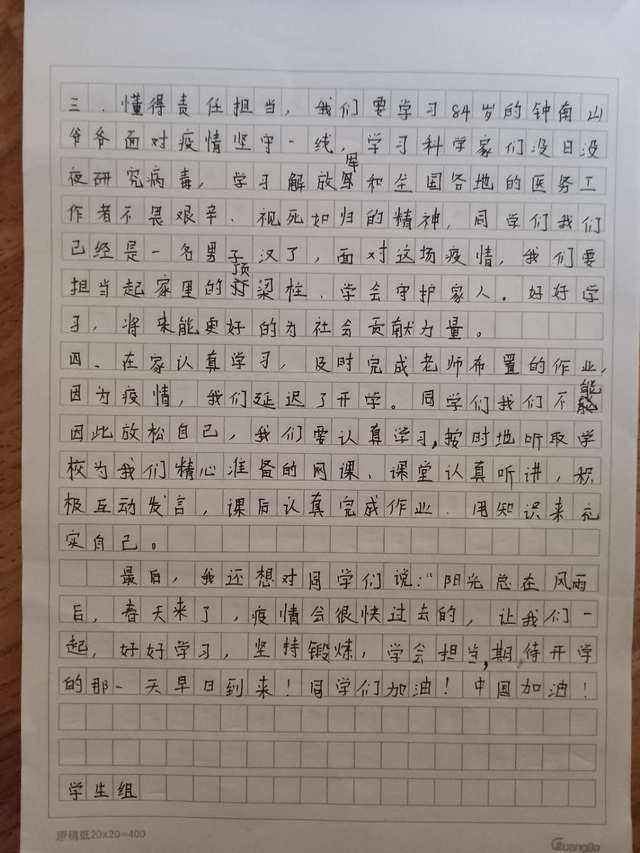 三.懂得责任担当,我们要学习84岁的钟南山
爷爷面对疫情坚守一线,学习科学家们没日没
夜研究病毒,学习解放军和全国各地的医务工
作者不畏艰辛、视死如归的精神,同学们我们
已经是一名男子汉了,面对这场疫情,我们要
担当起家里的顶梁柱、学会守护家人。好好学
习,将来能更好的为社会贡献力量。
四、在家认真学习,及时完成老师布置的作业,
因为疫情,我们延迟了开学。同学们我们不能
因此放松自己,我们要认真学习,按时地听取学
校为我们精心准备的网课、课堂认真听讲,积
极互动发言,课后认真完成作业、用知识来充
实自己。
最后,我还想对同学们说:“阳光总在风雨
后,春天来了,疫情会很快过去的,让我们一
起,好好学习,坚持锻炼,学会担当,期待开学
的那一天早日到来!同学们加油!中国加油!
学生组
原稿纸20x20=400
GuangBo